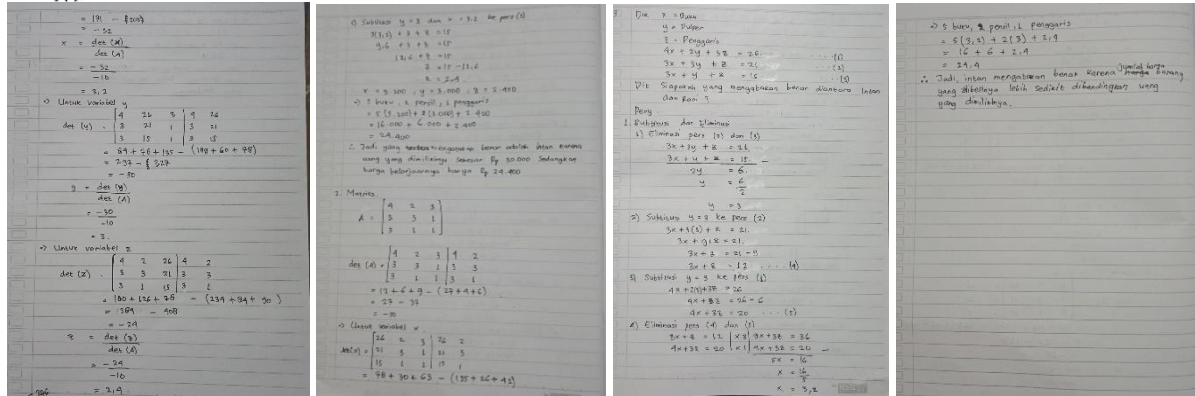 = 191 - (
= -32
x = det (x)
det (A)
= -32
-10
= 3,2
=> Untuk variabel y
det (y) =
4 26 3 4 26
3 21 1 3 21
3 15 1 3 15
= 84 + 78 + 135 - (198 + 60 + 78)
= 297 - 327
= -30
y = det (y)
det (A)
= -30
-10
= 3.
=> Untuk variabel z
det (z) =
4 2 26 4 2
3 3 21 3 3
3 1 15 3 1
= 180 + 126 + 78 - (234 + 84 + 90)
= - 408
= -24
z = det (z)
det (A)
= -24
-10
= 2,4
5) Subtitusi y = 3 dan x = 3.2 ke pers (3)
3(3,2) + 3 + z = 15
9,6 + 3 + z = 15
12,6 + z = 15
z = 15 - 12,6
z = 2,4
x = 3.200, y = 3.000, z = 2.400
=> 5 buku, 2 pensil, 1 penggaris
= 5 (3.200) + 2 (3.000) + 2.400
= 16.000 + 6.000 + 2.400
= 24.400
∴ Jadi yang mengatakan benar adalah intan karena
uang yang dimilikinya sebesar Rp 30.000 Sedangkan
harga belanjaannya hanya Rp 24.400
2. Matriks
A =
4 2 3
3 3 1
3 1 1
det (A) =
4 2 3 4 2
3 3 1 3 3
3 1 1 3 1
= 12 + 6 + 9 - (27 + 4 + 6)
= 27 - 37
= -10
=> Untuk variabel x
det(x) =
26 2 3 26 2
21 3 1 21 3
15 1 1 15 1
= 78 + 30 + 63 - (135 + 26 + 42)
Dik x = Buku
y = Pulpen
z = Penggaris
4x + 2y + 3z = 26 ....(1)
3x + 3y + z = 21 ....(2)
3x + y + z = 15 ....(3)
Dit Siapakah yang mengatakan benar diantara Intan
dan Rani ?
Peny
1. Subtitusi dan Eliminasi
1) Eliminasi pers (2) dan (3)
3x + 3y + z = 21
3x + y + z = 15 -
2y = 6
y = 6
2
y = 3
2) Subtitusi y = 3 ke pers (2)
3x + 3(3) + z = 21
3x + 9 + z = 21
3x + z = 21 - 9
3x + z = 12 ....(4)
3) Subtitusi y = 3 ke pers (1)
4x + 2(3) + 3z = 26
4x + 3z = 26 - 6
4x + 3z = 20 ....(5)
4) Eliminasi pers (4) dan (5)
3x + z = 12 | x3 | 9x + 3z = 36
4x + 3z = 20 | x1 | 4x + 3z = 20 -
5x = 16
x = 16
5
x = 3,2
=> 5 buku, 2 pensil, 1 penggaris
= 5 (3,2) + 2 (3) + 2,4
= 16 + 6 + 2,4
= 24,4
∴ Jadi, intan mengatakan benar karena jumlah harga barang
yang dibelinya lebih sedikit dibandingkan uang
yang dimilikinya.